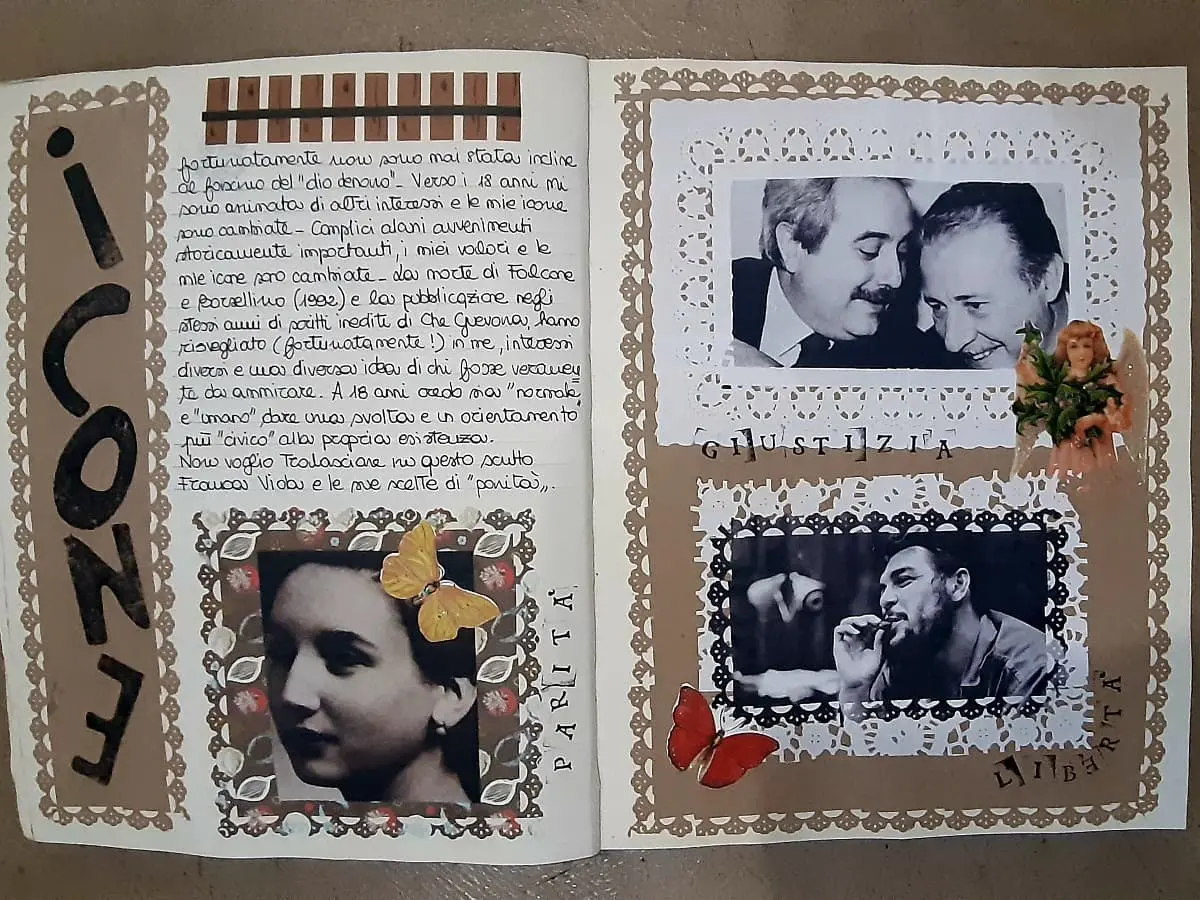 iCONE
fortunatamente non sono mai stata incline
al fascino del "dio denaro"_ Verso i 18 anni mi
sono animata di altri interessi e le mie icone
sono cambiate_ Complici alcuni avvenimenti
storicamente importanti, i miei valori e le
mie icone sono cambiate_ La morte di Falcone
e Borsellino (1992) e la pubblicazione negli
stessi anni di scritti inediti di Che Guevara, hanno
risvegliato (fortunatamente!) in me, interessi
diversi e una diversa idea di chi fosse veramen
te da ammirare. A 18 anni credo sia "normale"
e "umano" dare una svolta e un orientamento
più "civico" alla propria esistenza.
Non voglio tralasciare in questo scritto
Franca Viola e le sue scelte di "parità".
PARITA'
GIUSTIZIA
LIBERTA'